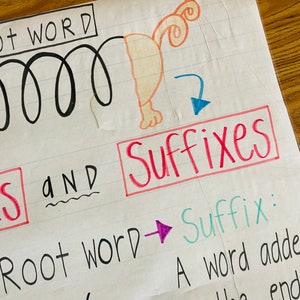 ROOT WORD
and Suffixes
Root word → Suffix:
A word added
the end